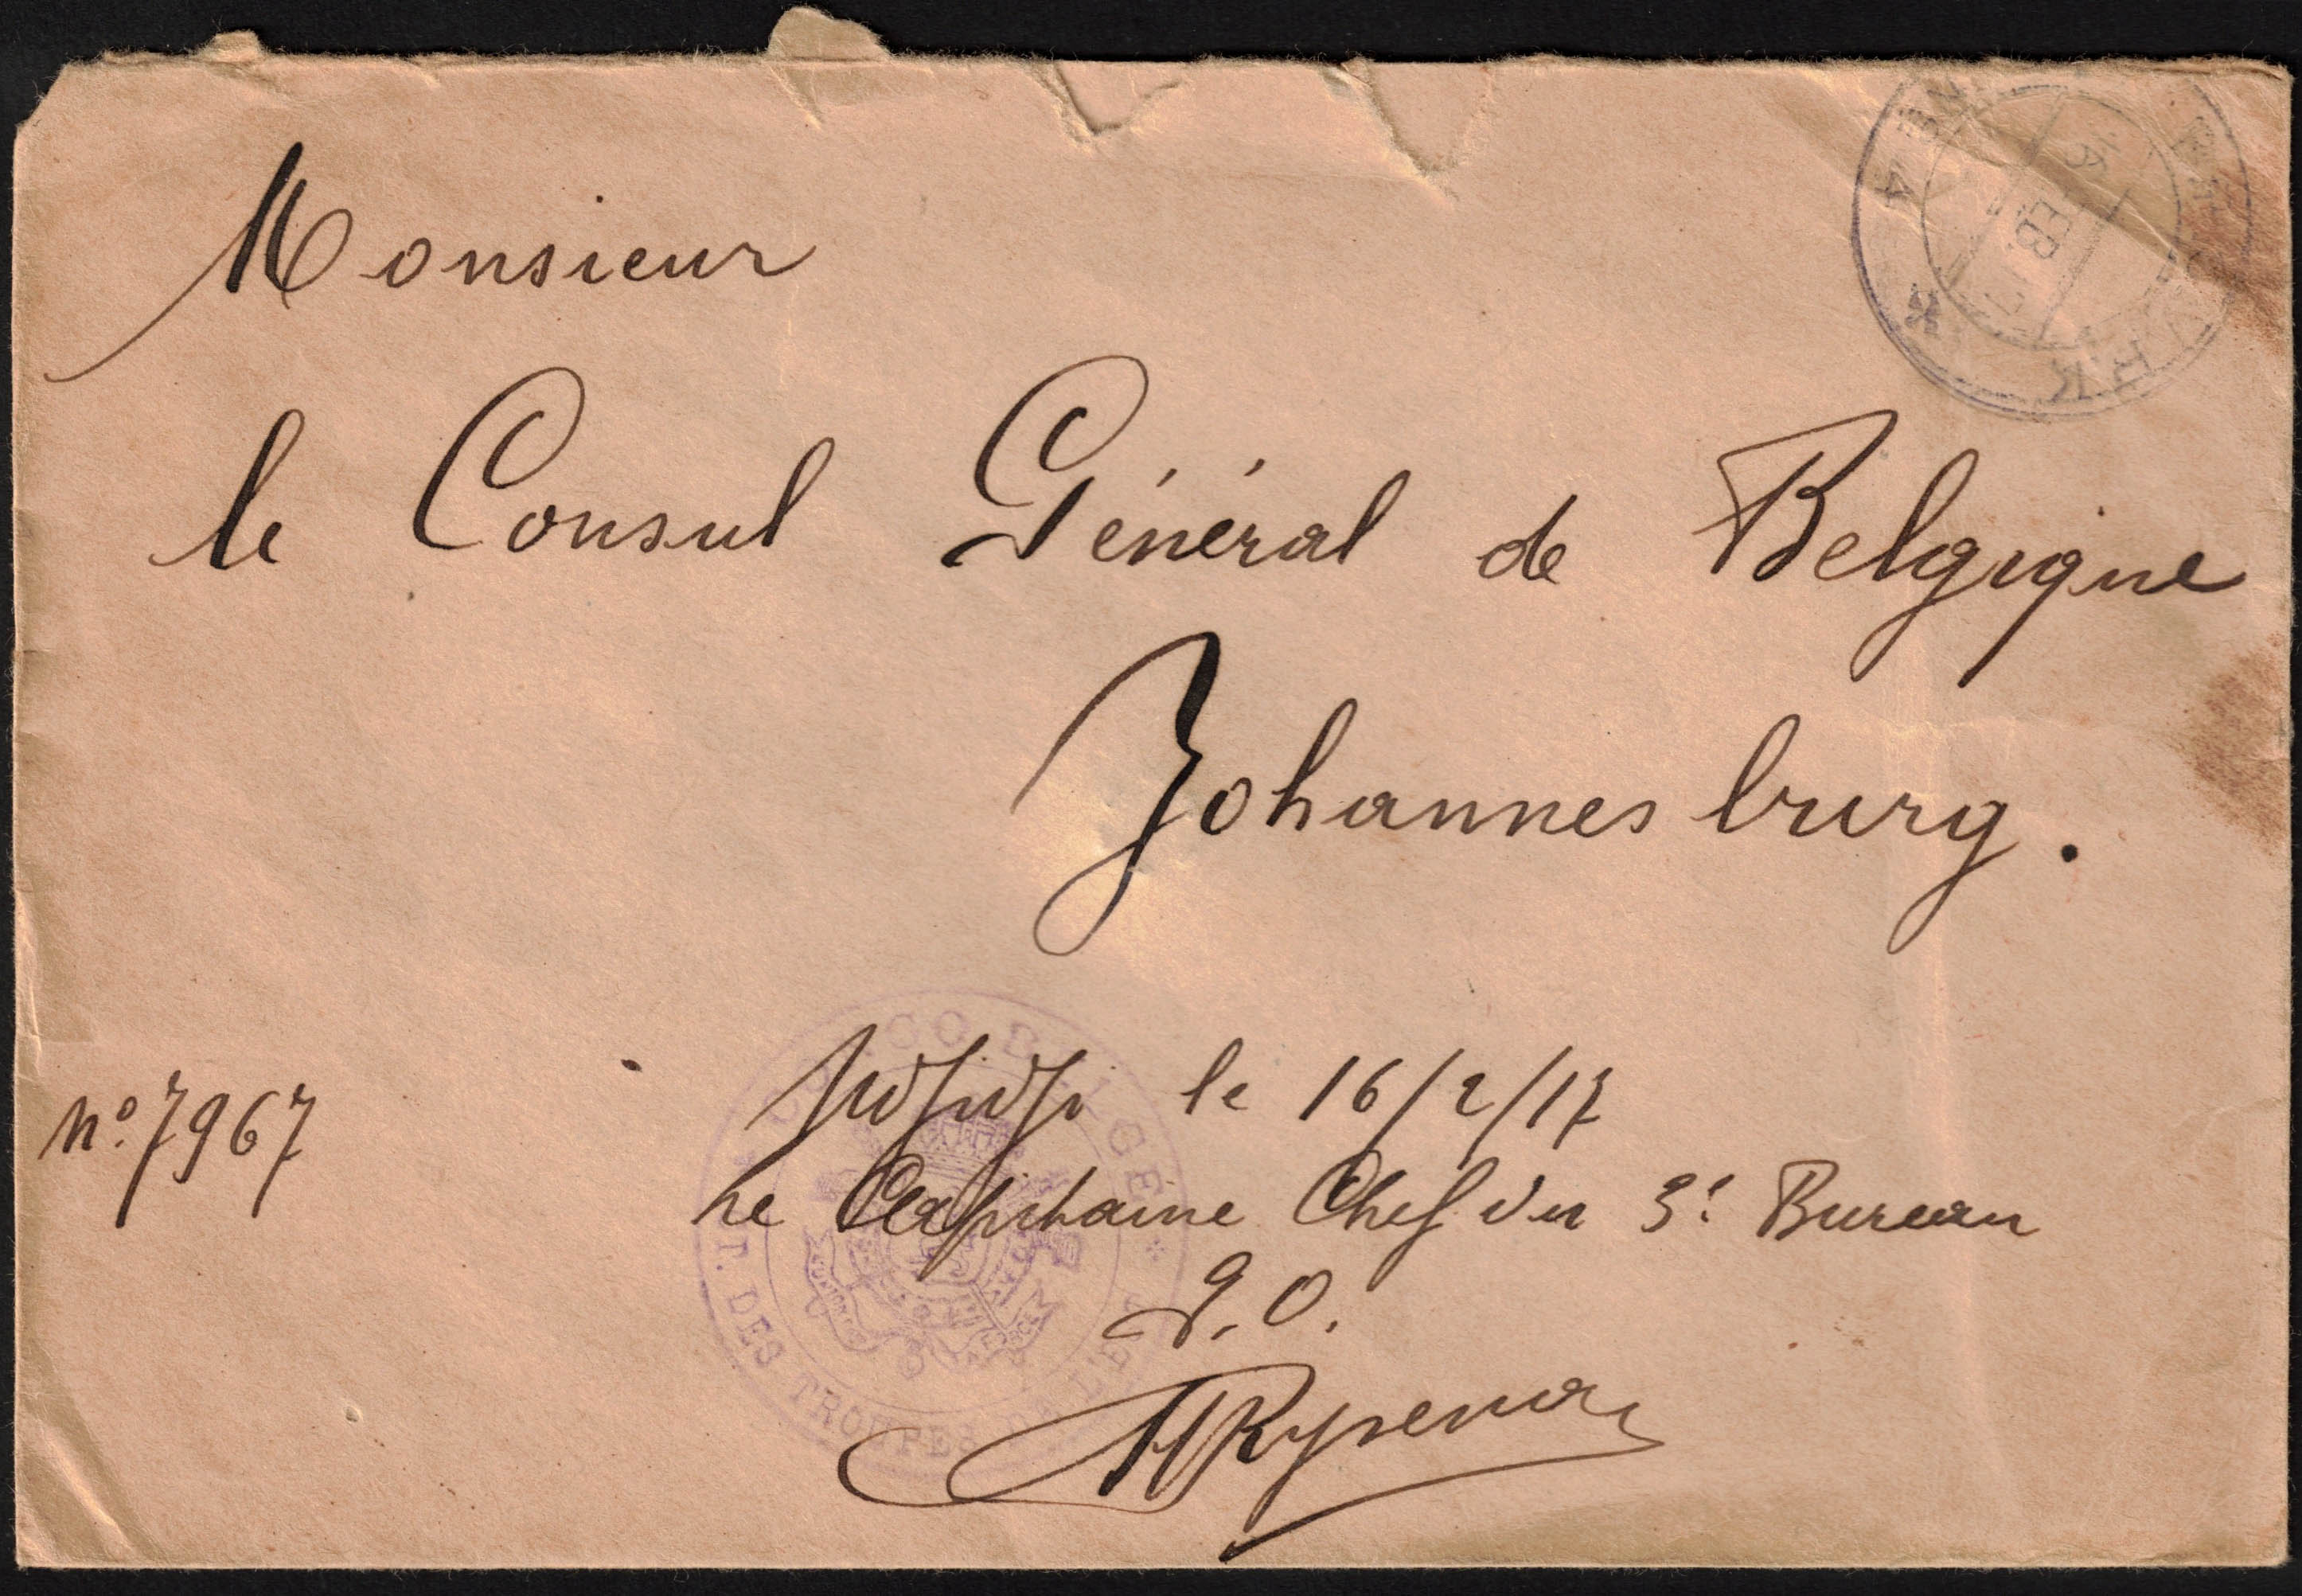 Monsieur
le Consul Général de Belgique
Johannesburg.
No. 7967
le 16/2/17
Le Capitaine Chef du 3e Bureau
DES TROUPES